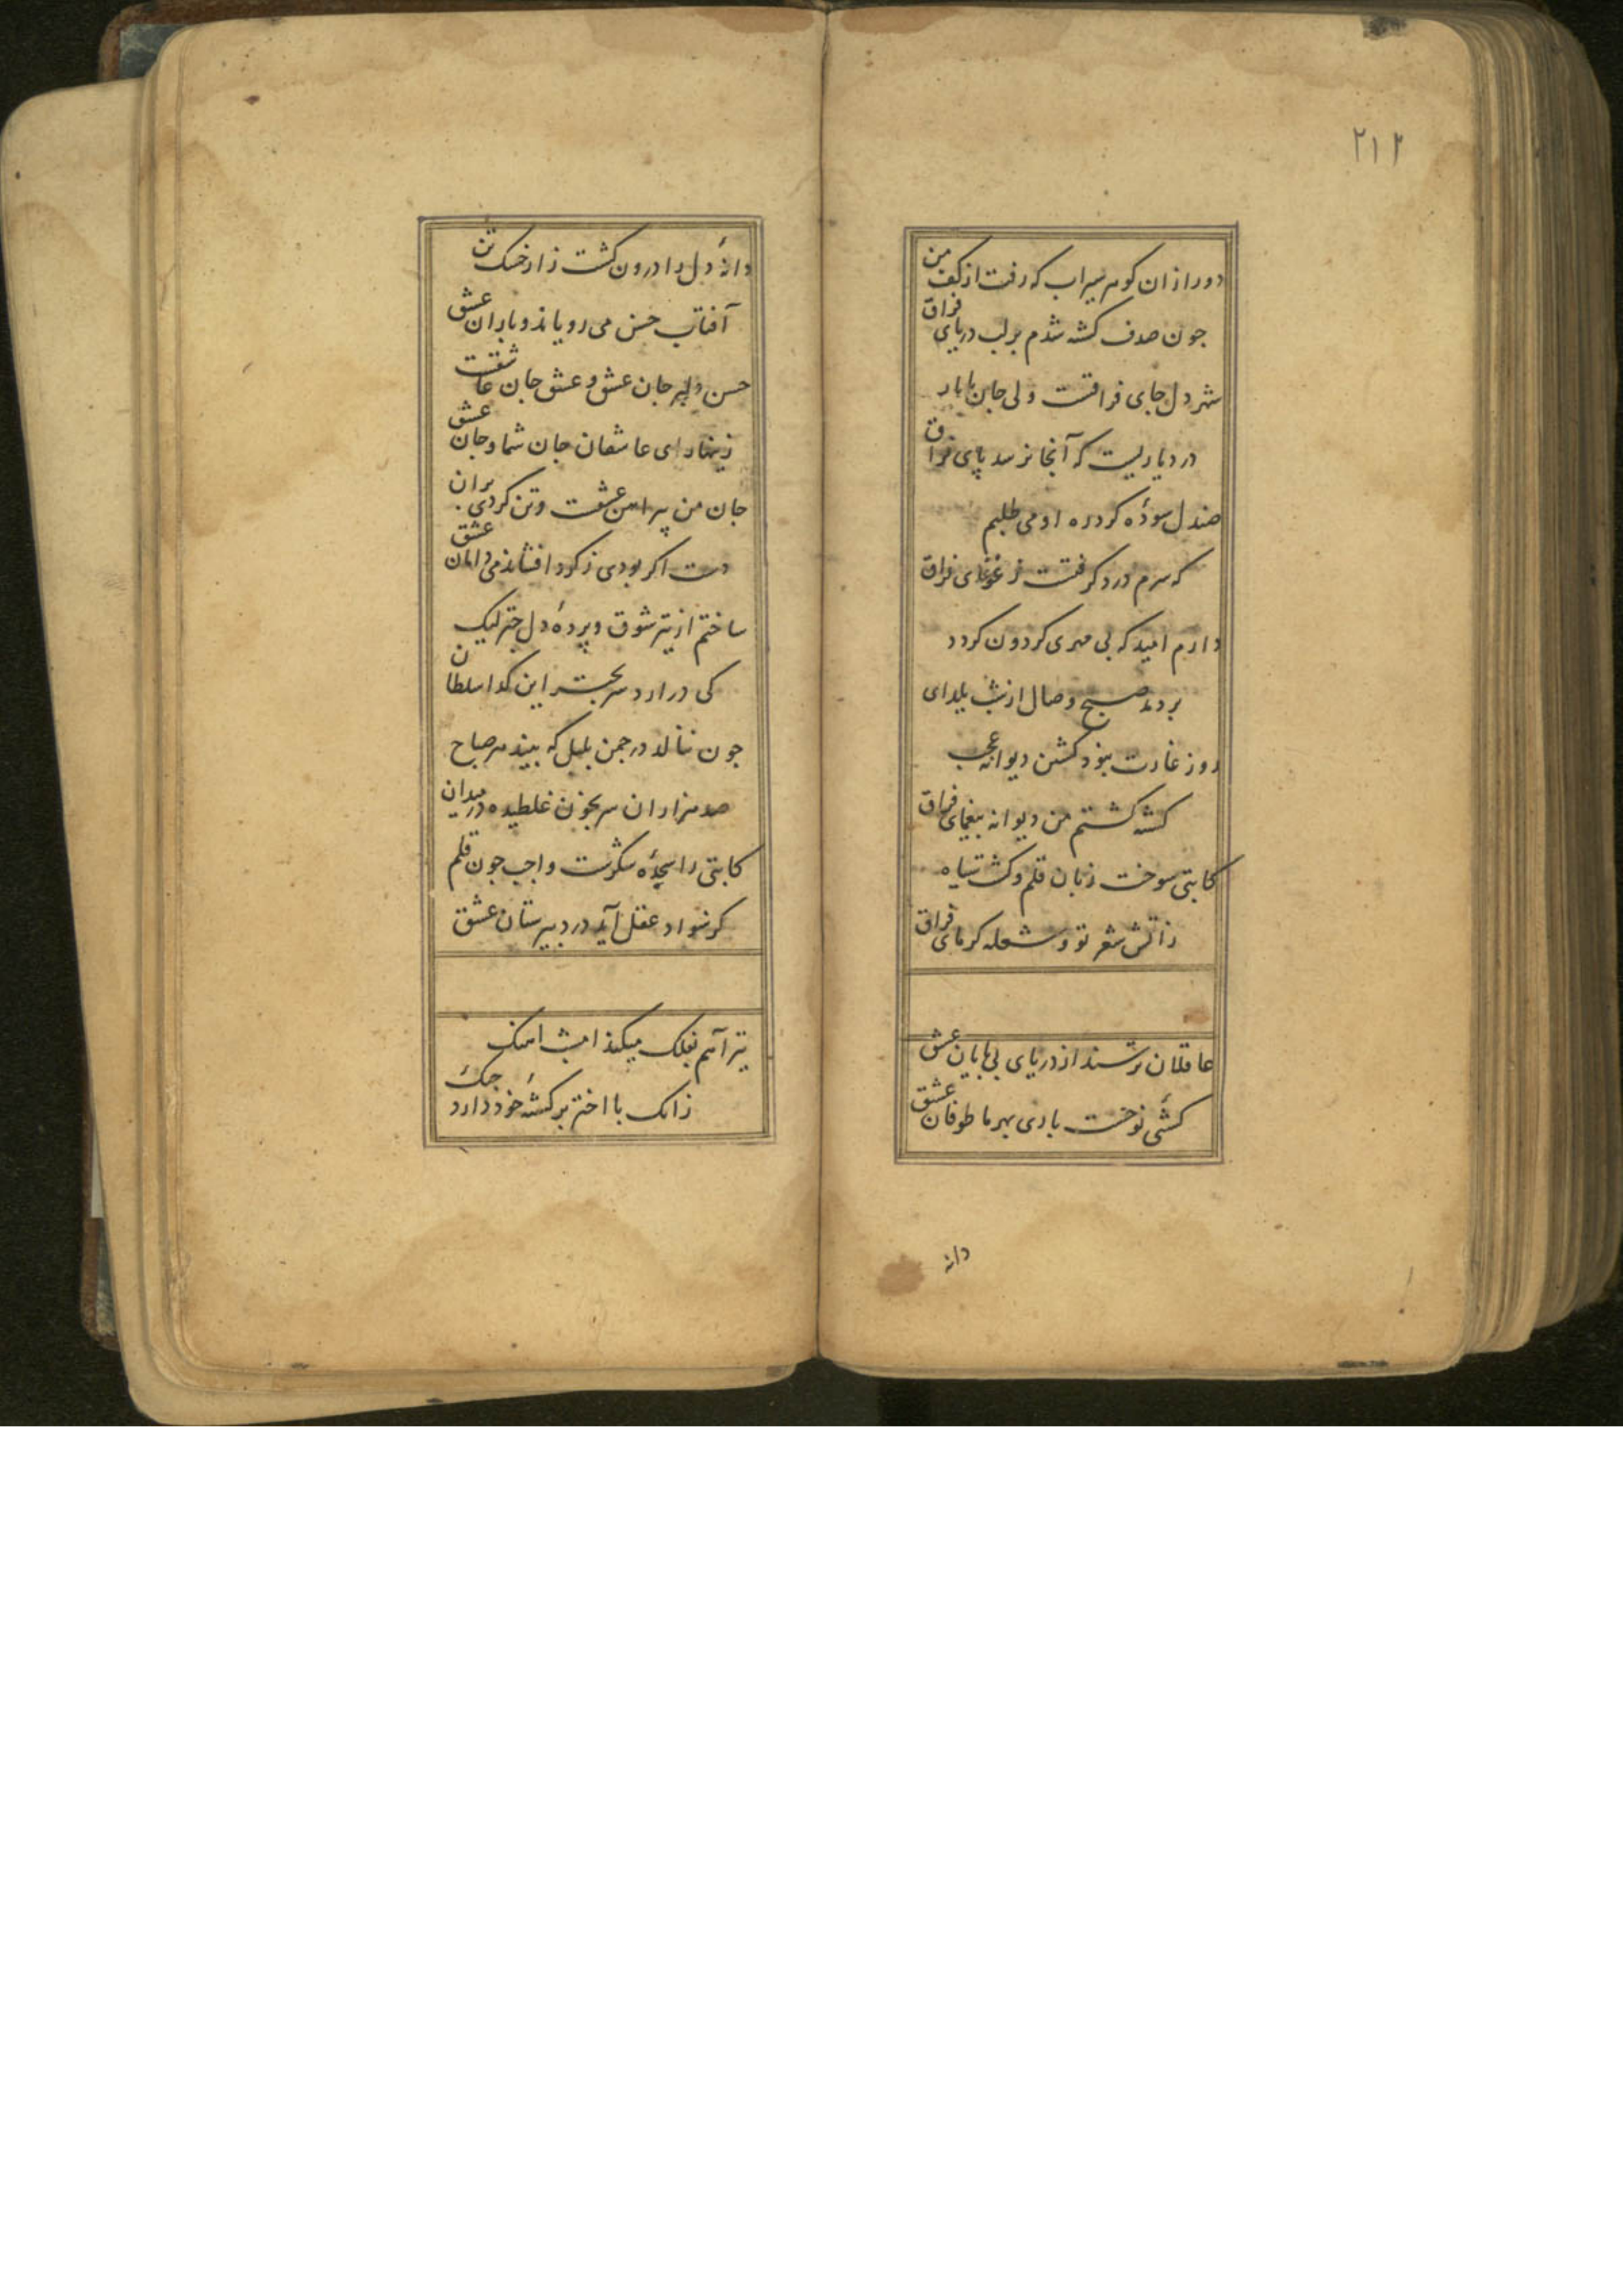 ۲۱۲
دور ازان کوهر سیراب که رفت از کف من
جون صدف کشته شدم بر لب دریای فراق
شهر دل جای فراقت ولی جان
در دیاریست که آنجا نرسد پای فراق
صندل سوده کرد ره او می طلبم
که سرم درد کرفتست ز غوغای فراق
دارم امید که بی مهری کردون کردد
بردمد صبح وصال از شب یلدای
روز غارت بنود کشتن دیوانه عجب
کشته کشتم من دیوانه بیغمای فراق
کاتبی سوخت زبان قلم و کشت سیاه
زآتش شعر تو و شعله کرمای فراق
عاقلان ترسند از دریای بی پایان عشق
کشتی نوحست باری بهر ما طوفان عشق
دانه
دانهٔ دل را درون کشت زار خشک تن
آفتاب حسن می رویاند و باران عشق
حسن دلبر جان عشق و عشق جان عاشقست
زینهار ای عاشقان جان شما و جان عشق
جان من پیراهن عشقست و تن کردی بران
دست اکر بودی ز کرد افشاندمی دامان عشق
ساختم از تیر شوق و پردهٔ دل چتر لیک
کی درارد سر بچتر این کدا سلطان
جون ننالد در جمن بلبل که بیند هر صباح
صد هزاران سر بخون غلطیده در میدان
کاتبی را سجدهٔ شکرست واجب جون قلم
کر سواد عقل آید در دبیرستان عشق
تیر آهم بفلک میکند امشب آهنک
زانک با اختر برکشتهٔ خود دارد جنک